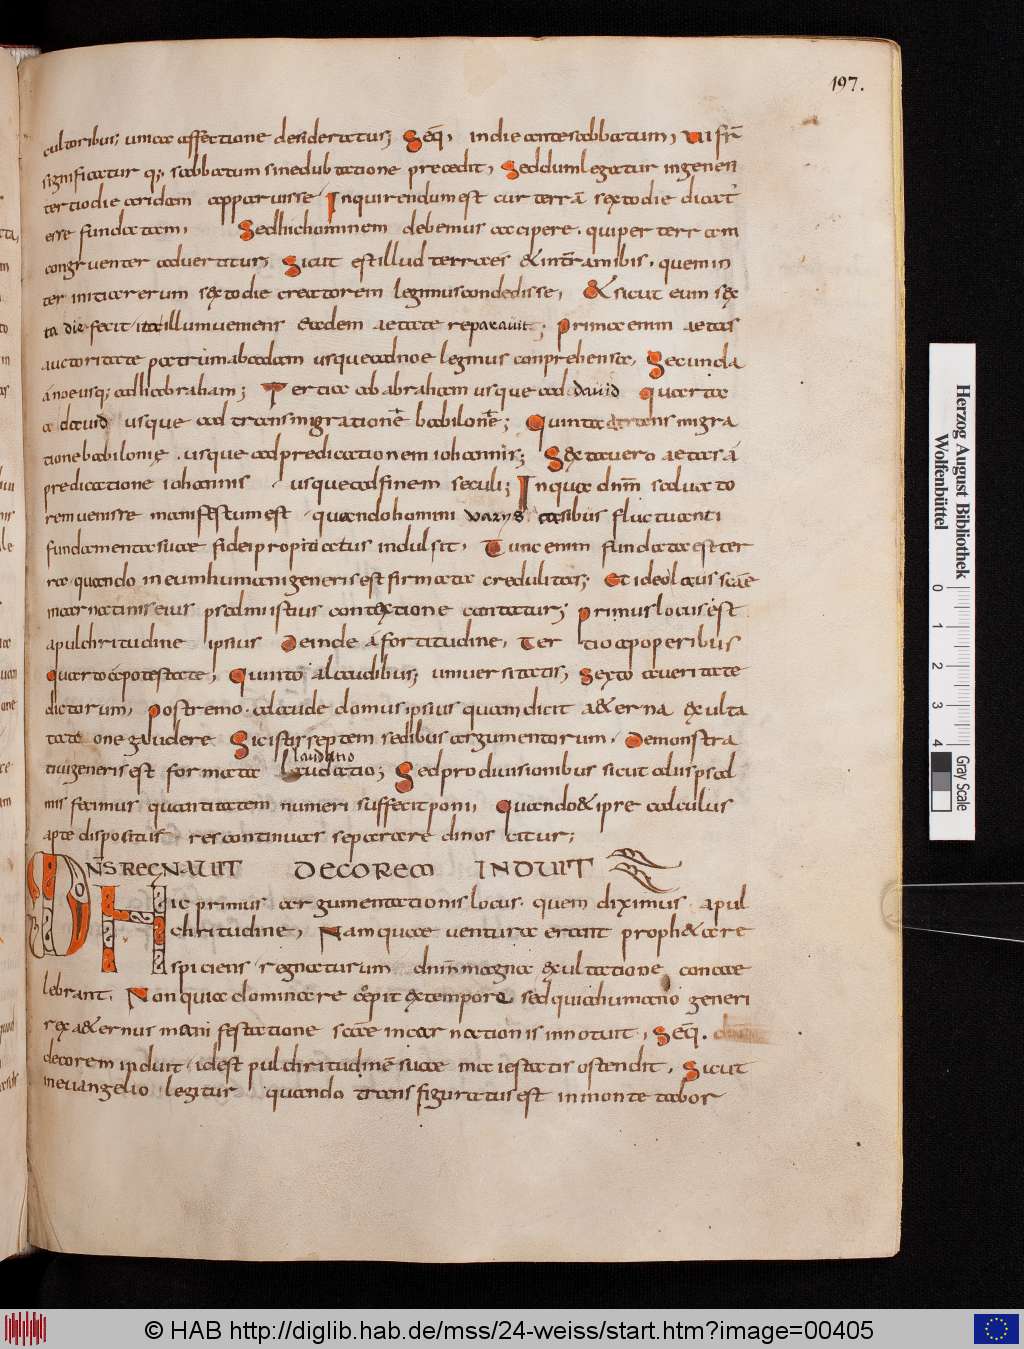 197.
cultoribus; unicae affectione desideratur; Seq̄, in die ante sabbatum, ut fr̄
significatur q; sabbatum sine dubitatione precedit, Sed dum legatur in genesi
tertio die aridam apparuisse. Inquirendum est cur terrā sexto die dicat̄
esse fundatam, Sed hic hominem debemus accipere. qui per terram
congruenter advertitur; Sicut est illud terra es & in terram ibis. quem in
ter initia rerum sexto die creatorem legimus condedisse, & sicut eum sex
ta die fecit ita illum veniens eadem aetate reparavit; Prima enim aetas
auctoritate patrum ab adam usque ad noe legimus conprehensa, Secunda
á noe usq; ad habraham; Tertia ab abraham usque ad david Quarta
a david usque ad transmigrationē babilonē; Quinta a transmigra
tione babilonię. usque ad predicationem iohannis; Sexta vero aetas á
predicatione iohannis usque ad finem seculi; In qua dnm̄ salvato
rem venisse manifestum est. quando homini varys casibus fluctuanti
fundamenta suae fidei propitiatus indulsit, Tunc enim fundata est ter
ra. quando in eum humani generis est firmata credulitas; Et ideo laus scāe
incarnationis eius psalmi istius contextione cantatur; Primus locus est
a pulchritudine ipsius Deinde á fortitudine, Ter tio ap operibus
Quarto á potestate, Quinto a laudibus; universitatis, Sexto a veritate
dictorum, Postremo. a laude domus ipsius quam dicit a&erna exulta
tatione gaudere Sic istis septem sedibus argumentorum. Demonstra
laudatio
tivi generis est formata Laudatio; Sed pro divisionibus sicut alius psal
mis fecimus quantitatem numeri suffecit poni, Quando & ipse calculus
apte dispositus. res continuas separare dinoscatur;
DN̄S REGNAVIT DECOREM INDUIT
Hic primus argumentationis locus. quem diximus a pul
chritudine, Nam quae ventura erant proph&a re
spiciens. regnaturum dnm̄ magna exultatione concae
lebrant, Non quia dominare coepit ex tempore sed quia humano generi
rex a&ernus manifestatione scāe incarnationis innotuit, Seq̄.
decorem induit. id est pulchritudinē suae maiestatis ostendit, Sicut
in evangelio legitur quando transfiguratus est in monte tabor
Herzog August Bibliothek
Wolfenbüttel
0 1 2 3 4
Gray Scale
© HAB http://diglib.hab.de/mss/24-weiss/start.htm?image=00405